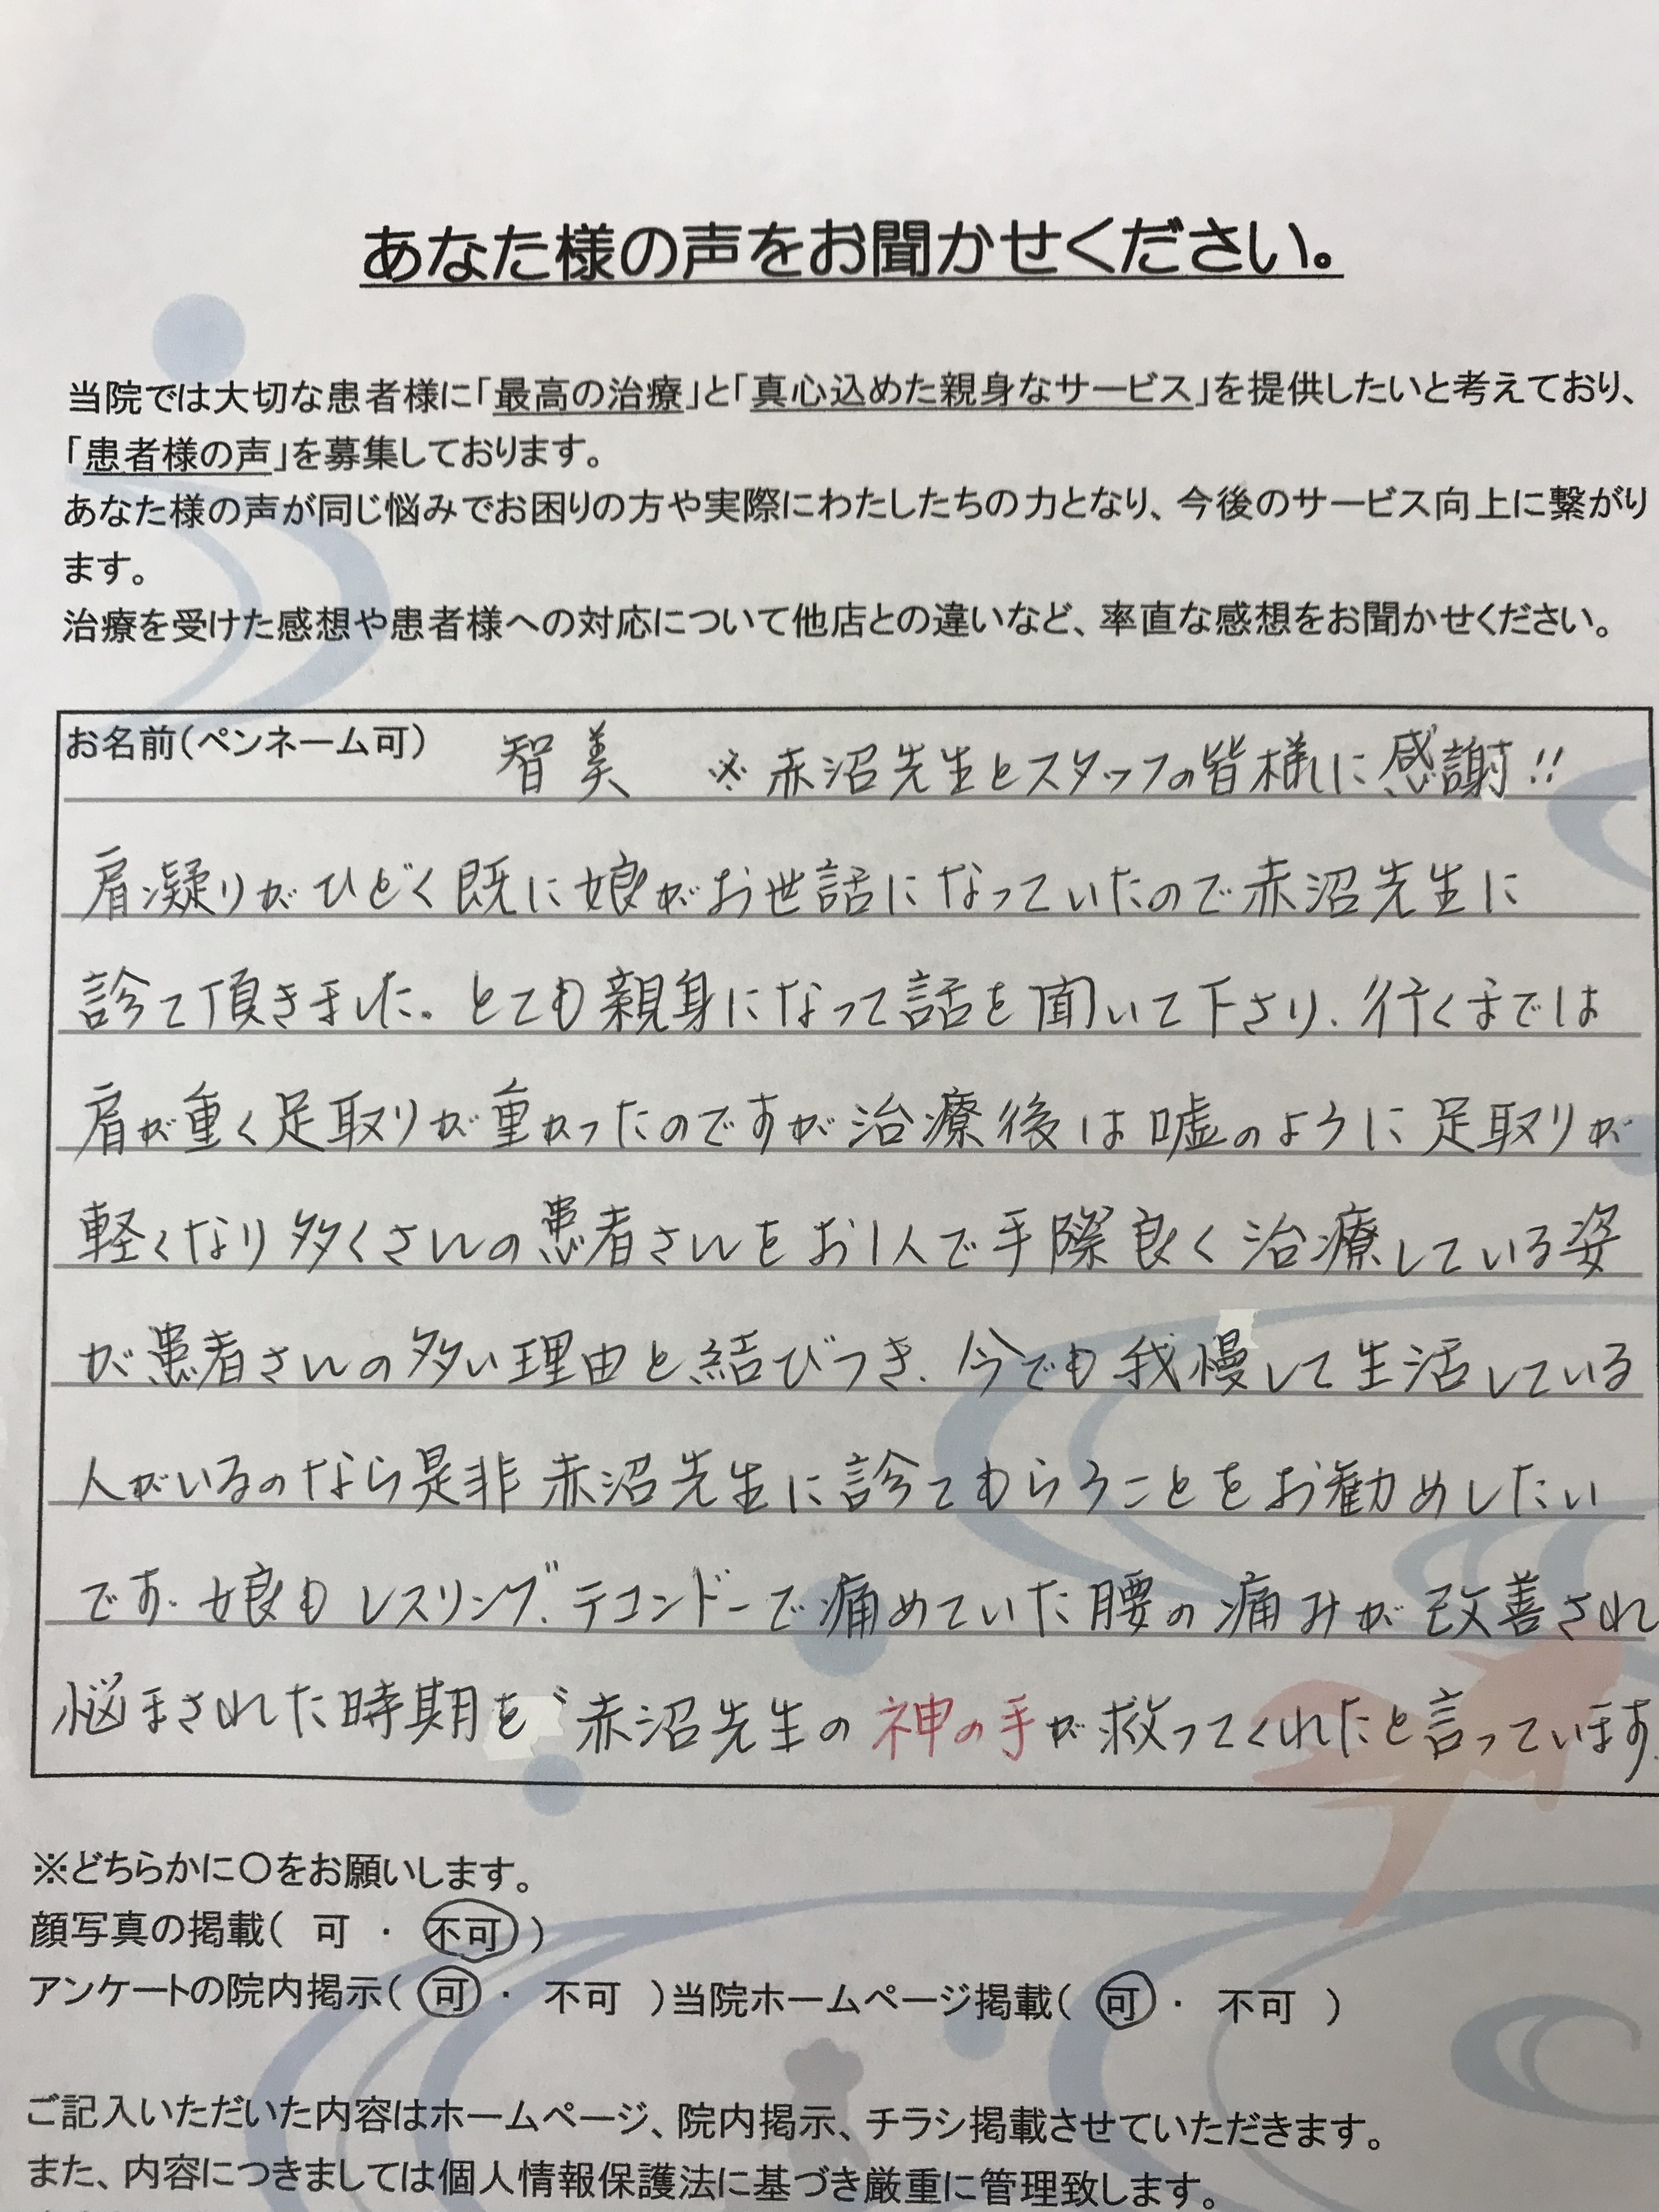 あなた様の声をお聞かせください。
当院では大切な患者様に「最高の治療」と「真心込めた親身なサービス」を提供したいと考えており、
「患者様の声」を募集しております。
あなた様の声が同じ悩みでお困りの方や実際にわたしたちの力となり、今後のサービス向上に繋がり
ます。
治療を受けた感想や患者様への対応について他店との違いなど、率直な感想をお聞かせください。
お名前(ペンネーム可) 智美 ※赤沼先生とスタッフの皆様に感謝!!
肩凝りがひどく既に娘がお世話になっていたので赤沼先生に
診て頂きました。とても親身になって話を聞いて下さり、行くまでは
肩が重く足取りが重かったのですが治療後は嘘のように足取りが
軽くなり多くさんの患者さんをお1人で手際良く治療している姿
が患者さんの多い理由と結びつき、今でも我慢して生活している
人がいるのなら是非赤沼先生に診てもらうことをお勧めしたい
です。娘もレスリング、テコンドーで痛めていた腰の痛みが改善され
悩まされた時期を〝赤沼先生の神の手が救ってくれたと言っています。
※どちらかに〇をお願いします。
顔写真の掲載( 可 ・ 不可 )
アンケートの院内掲示( 可 ・ 不可 )当院ホームページ掲載( 可 ・ 不可 )
ご記入いただいた内容はホームページ、院内掲示、チラシ掲載させていただきます。
また、内容につきましては個人情報保護法に基づき厳重に管理致します。